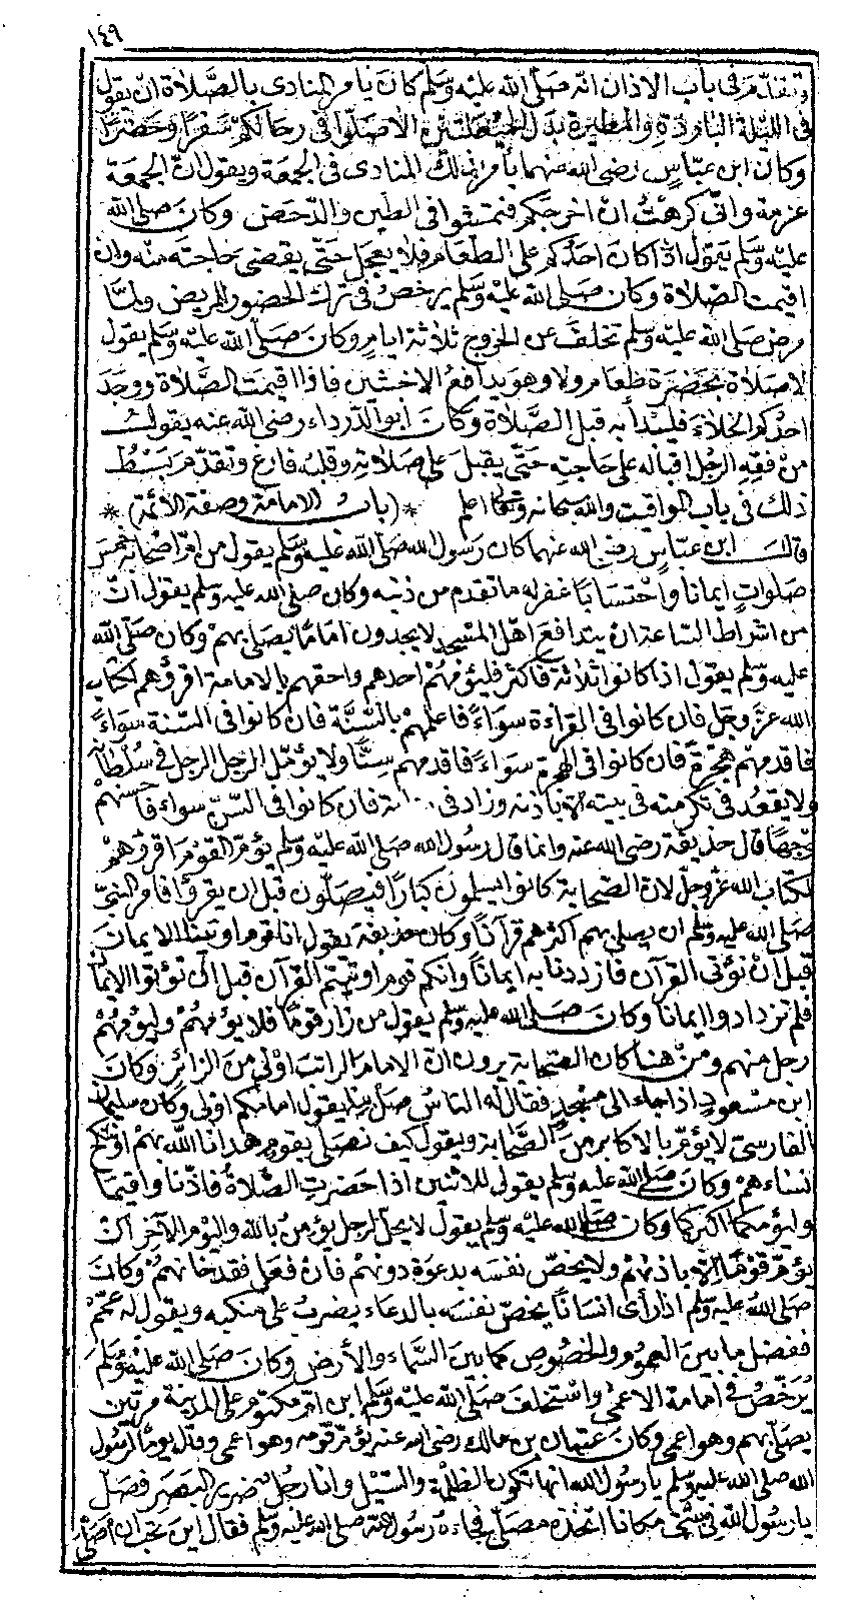 ١٤٩
وتقدّم في باب الاذان انّه صلّى الله عليه وسلّم كان يأمر المنادي بالصّلاة ان يقول
في الليلة الباردة والمطيرة بدل الحيّعلتين الاصلّوا في رحالكم سفرًا وحضرًا
وكان ابن عبّاس رضي الله عنهما يأمر بذلك المنادي في الجمعة ويقول انّ الجمعة
عزمة وانّي كرهت ان اخرجكم فتمشوا في الطين والدّحض وكان صلى الله
عليه وسلّم يقول اذا كان احدكم على الطعام فلا يعجل حتّى يقضي حاجته منه وان
اقيمت الصّلاة وكان صلى الله عليه وسلّم يرخص في ترك الحضور للمريض ولمّا
مرض صلى الله عليه وسلم تخلف عن الخروج ثلاثة ايام وكان صلى الله عليه وسلم يقول
لا صلاة بحضرة طعام ولا وهو يدافع الاخبثين فاذا اقيمت الصّلاة ووجد
احدكم الخلاء فليبدأ به قبل الصّلاة وكان ابو الدّرداء رضي الله عنه يقول
من فقه الرجل اقباله على حاجته حتّى يقبل على صلاته وقلبه فارغ وتقدّم بسط
ذلك في باب المواقيت والله سبحانه وتعالى اعلم *(باب الامامة وصفة الأئمّة)*
قال ابن عبّاس رضي الله عنهما كان رسول الله صلى الله عليه وسلم يقول من امّ اصحابه خمس
صلوات ايمانا واحتسابًا غفر له ما تقدم من ذنبه وكان صلى الله عليه وسلم يقول انّ
من اشراط السّاعة ان يتدافع اهل المسجد لا يجدون امامًا يصلّي بهم وكان صلى الله
عليه وسلم يقول اذا كانوا ثلاثة فأكثر فليؤمهم احدهم واحقهم بالامامة اقرؤهم لكتاب
الله عزّ وجل فان كانوا في القراءة سواءً فاعلمهم بالسّنّة فان كانوا في السّنة سواءً
فاقدمهم هجرة فان كانوا في الهجرة سواءً فاقدمهم سنًّا ولا يؤمّنّ الرجل الرجل في سلطانه
ولا يقعد في تكرمته في بيته الا باذنه وزاد في فان كانوا في السّنّ سواء فاحسنهم
وجهًا قال حذيفة رضي الله عنه وانما قال رسول الله صلى الله عليه وسلم يؤمّ القوم اقرؤهم
لكتاب الله عز وجلّ لانّ الصّحابة كانوا يسلمون كبارًا فيصلّون قبل ان يقرؤا فامر النبيّ
صلى الله عليه وسلم ان يصلي بهم اكثرهم قرآنًا وكان حذيفة يقول انا قوم اوتينا الايمان
قبل ان نؤتى القرآن فازددنا به ايمانًا وانكم قوم اوتيتم القرآن قبل ان تؤتوا الايمان
فلم تزدادوا ايمانا وكان صلى الله عليه وسلم يقول من زار قومًا فلا يؤمهم وليؤمهم
رجل منهم ومن هنا كان الصّحابة يرون انّ الامام الراتب اولى من الزائر وكان
ابن مسعود اذا جاء الى مسجد فقال له الناس صلّ بنا يقول امامكم اولى وكان سليمان
الفارسيّ لا يؤمّ بالاكابر من الصّحابة ويقول كيف نصلّي بقوم هدانا الله بهم
نساءهم وكان صلى الله عليه وسلم يقول للاثنين اذا حضرت الصّلاة فاذّنا واقيما
وليؤمكما اكبركما وكان صلى الله عليه وسلم يقول لا يحلّ لرجل يؤمن بالله واليوم الآخر ان
يؤمّ قومًا إلّا باذنهم ولا يخصّ نفسه بدعوة دونهم فان فعل فقد خانهم وكان
صلى الله عليه وسلم اذا رأى انسانًا يخصّ نفسه بالدعاء يضرب على منكبيه ويقول له عمّم
ففضل ما بين العموم والخصوص كما بين السّماء والأرض وكان صلى الله عليه وسلم
يرخّص في امامة الاعمى واستخلف صلّى الله عليه وسلم ابن ام مكتوم على المدينة مرتين
يصلّي بهم وهو اعمى وكان عتبان بن مالك رضي الله عنه يؤمّ قومه وهو اعمى وقال يومًا لرسول
الله صلى الله عليه وسلم يا رسول الله انها تكون الظلمة والسّيل وانا رجل ضرير البصر فصلّ
يا رسول الله في بيتي مكانا اتخذه مصلّى فجاءه رسول الله صلى الله عليه وسلم فقال اين تحب ان اصلّي